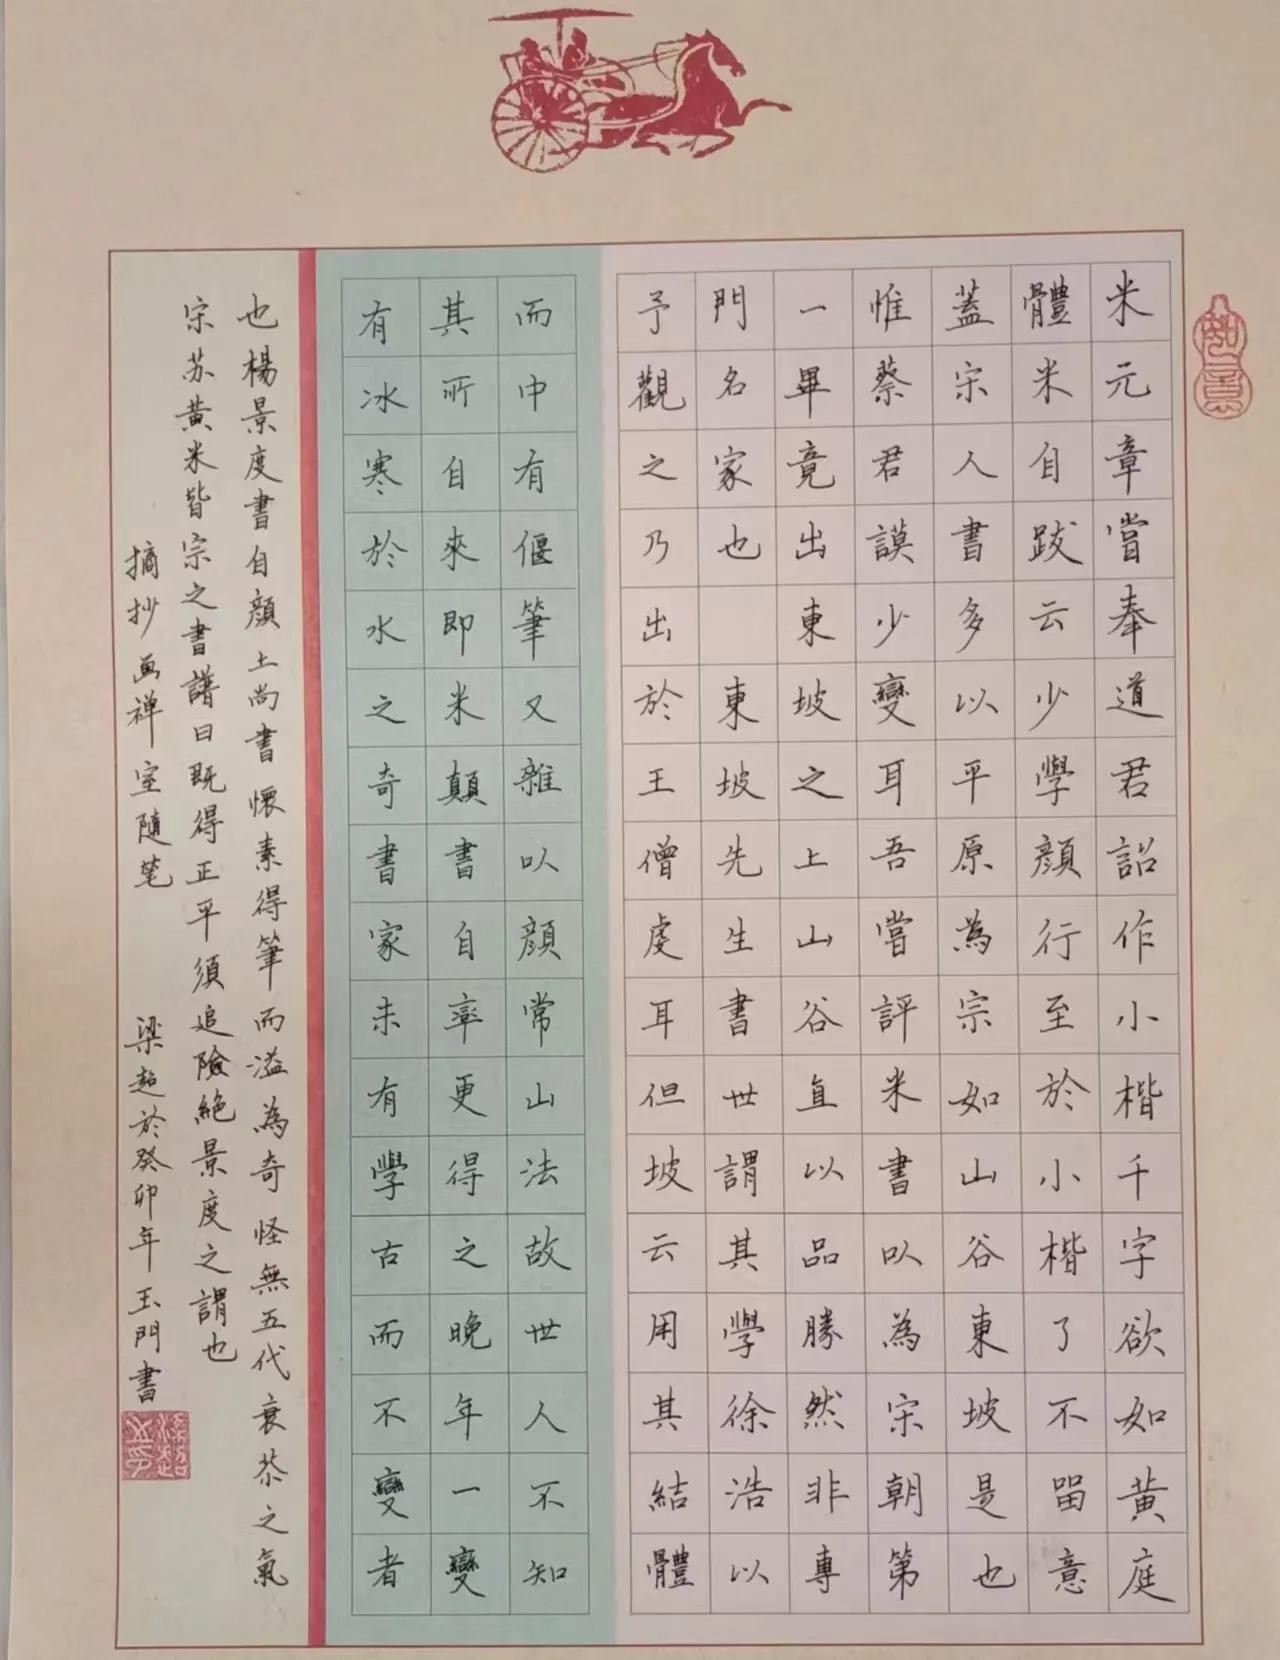 米元章嘗奉道君詔作小楷千字欲如黃庭
體米自跋云少學顔行至於小楷了不留意
蓋宋人書多以平原為宗如山谷東坡是也
惟蔡君謨少變耳吾嘗評米書以為宋朝第
一畢竟出東坡之上山谷直以品勝然非專
門名家也 東坡先生書世謂其學徐浩以
予觀之乃出於王僧虔耳但坡云用其結體
而中有偃筆又雜以顔常山法故世人不知
其所自來即米顛書自率更得之晚年一變
有冰寒於水之奇書家未有學古而不變者
也楊景度書自顔上尚書懷素得筆而溢為奇怪無五代衰苶之氣
宗苏黄米皆宗之書譜曰既得正平須追險絕景度之謂也
摘抄画禅室隨笔 梁超於癸卯年玉門書